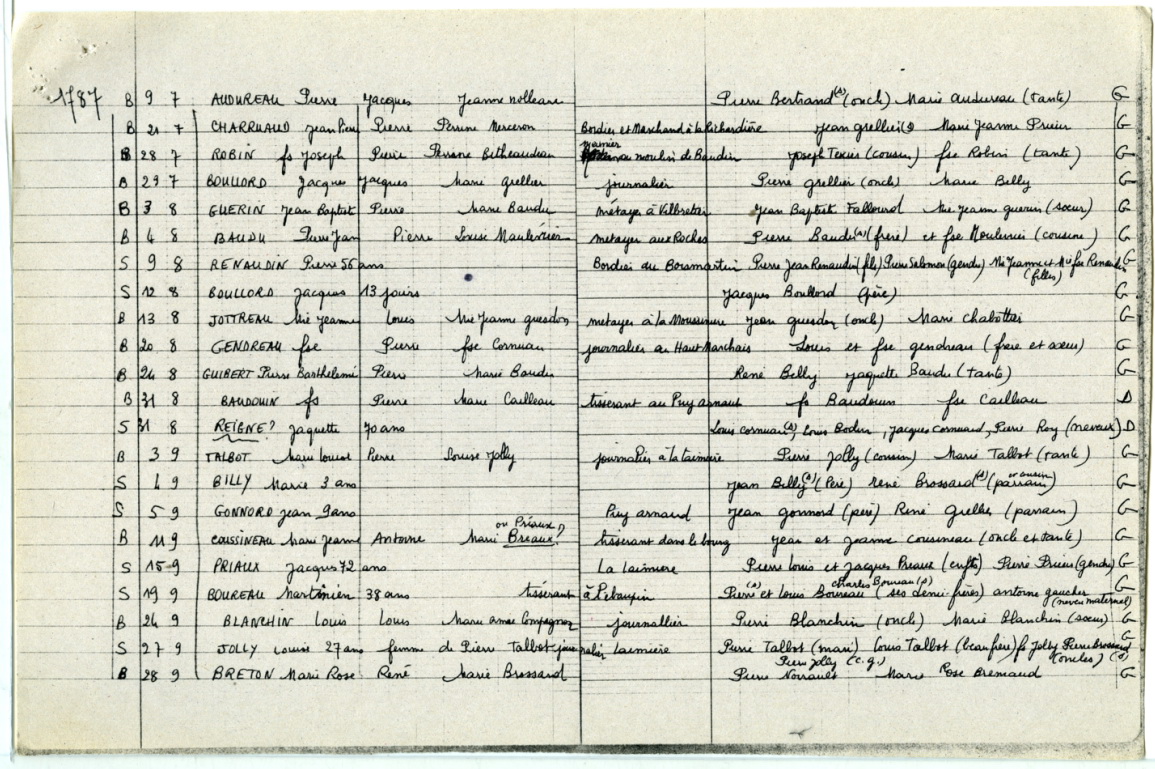 1787 B 9 7 AUDUREAU Pierre Jacques Jeanne nolleau Pierre Bertrand (s) (oncle) Marie audureau (tante) G
B 21 7 CHARRUAUD Jean Pierre Pierre Perrine Merceron Bordier et Marchand à la Richardière Jean grellier (s) Marie Jeanne Prieur G
B 28 7 ROBIN fs Joseph Pierre Perrine Betheaudeau au moulin de Baudin Joseph Texier (cousin) fse Robin (tante) G
B 29 7 BOULLORD Jacques Jacques Marie grellier journalier Pierre grellier (oncle) Marie Billy G
B 3 8 GUERIN Jean Baptist Pierre Marie Baudu métayer à Villbretar Jean Baptist Fallourd Mie Jeanne guerin (sœur) G
B 4 8 BAUDU Pierre Jean Pierre Louise Maulevrier metayer aux Roches Pierre Baudu (s) (frère) et fse Moulevrie (cousine) G
S 9 8 RENAUDIN Pierre 56 ans Bordier au Boismartin Pierre Jean Renaudin (fls) Pierre Salomon (gendre) Mie Jeanne et Mie fse Renaudin (filles) G
S 12 8 BOULLORD Jacques 13 jours Jacques Boullord (père) G
B 13 8 JOTTREAU Mie Jeanne Louis Mie Jeanne guesdon métayer à la Jean guesdon (oncl) Marie chabottier G
B 20 8 GENDREAU fse Pierre fse Cornuau journalier au Haut Marchais Louis et fse gendreau (frère et sœur) G
B 24 8 GUIBERT Pierre Barthelemé Pierre Marie Baudu René Billy Jaquette Baudu (tante) G
B 31 8 BAUDOUIN fs Pierre Marie Cailleau tisserant au Puy arnaut fs Baudouin fse Cailleau D
S 31 8 REIGNE? Jaquette 70 ans Louis cornuau (s), Louis Bodin, Jacques cornuaud, Pierre Roy (neveux) D
B 3 9 TALBOT Marie Louise Pierre Louise Jolly journalier à la taimiere Pierre Jolly (cousin) Marie Talbot (tante) G
S 4 9 BILLY Marie 3 ans Jean Billy (s) (Père) René Brossard (s) (parrain) ou cousin G
S 5 9 GONNORD Jean 9ans Puy arnaud Jean gonnord (père) René grellier (parrain) G
B 11 9 COUSSINEAU Marie Jeanne Antoine Marie Breaux? ou Priaux tisserant dans le bourg Jean et Jeanne cousineau (oncle et tante) G
S 15 9 PRIAUX Jacques 72 ans La laimiere Pierre Louis et Jacques Preaux (enfts) Pierre Prieur (gendre) G
S 19 9 BOUREAU Martinien 38 ans tisserant à Lebaupin Pierre (s) et Louis Boureau charles Boureau (s) (ses demi-frères) antoine gaucher (neveu maternel) G
B 24 9 BLANCHIN Louis Louis Marie anne Compagnon journallier Pierre Blanchin (oncl) Marie Blanchin (sœur) G
S 27 9 JOLLY Louise 27 ans femme de Pierre Talbot journalier laimiere Pierre Talbot (mari) Louis Talbot (beaufrère) fs Jolly Pierre brossard (oncles) (s) Pierre Jolly (c.g.) G
B 28 9 BRETON Marie Rose René Marie Brossard Pierre Norrault Marie Rose Bremaud G